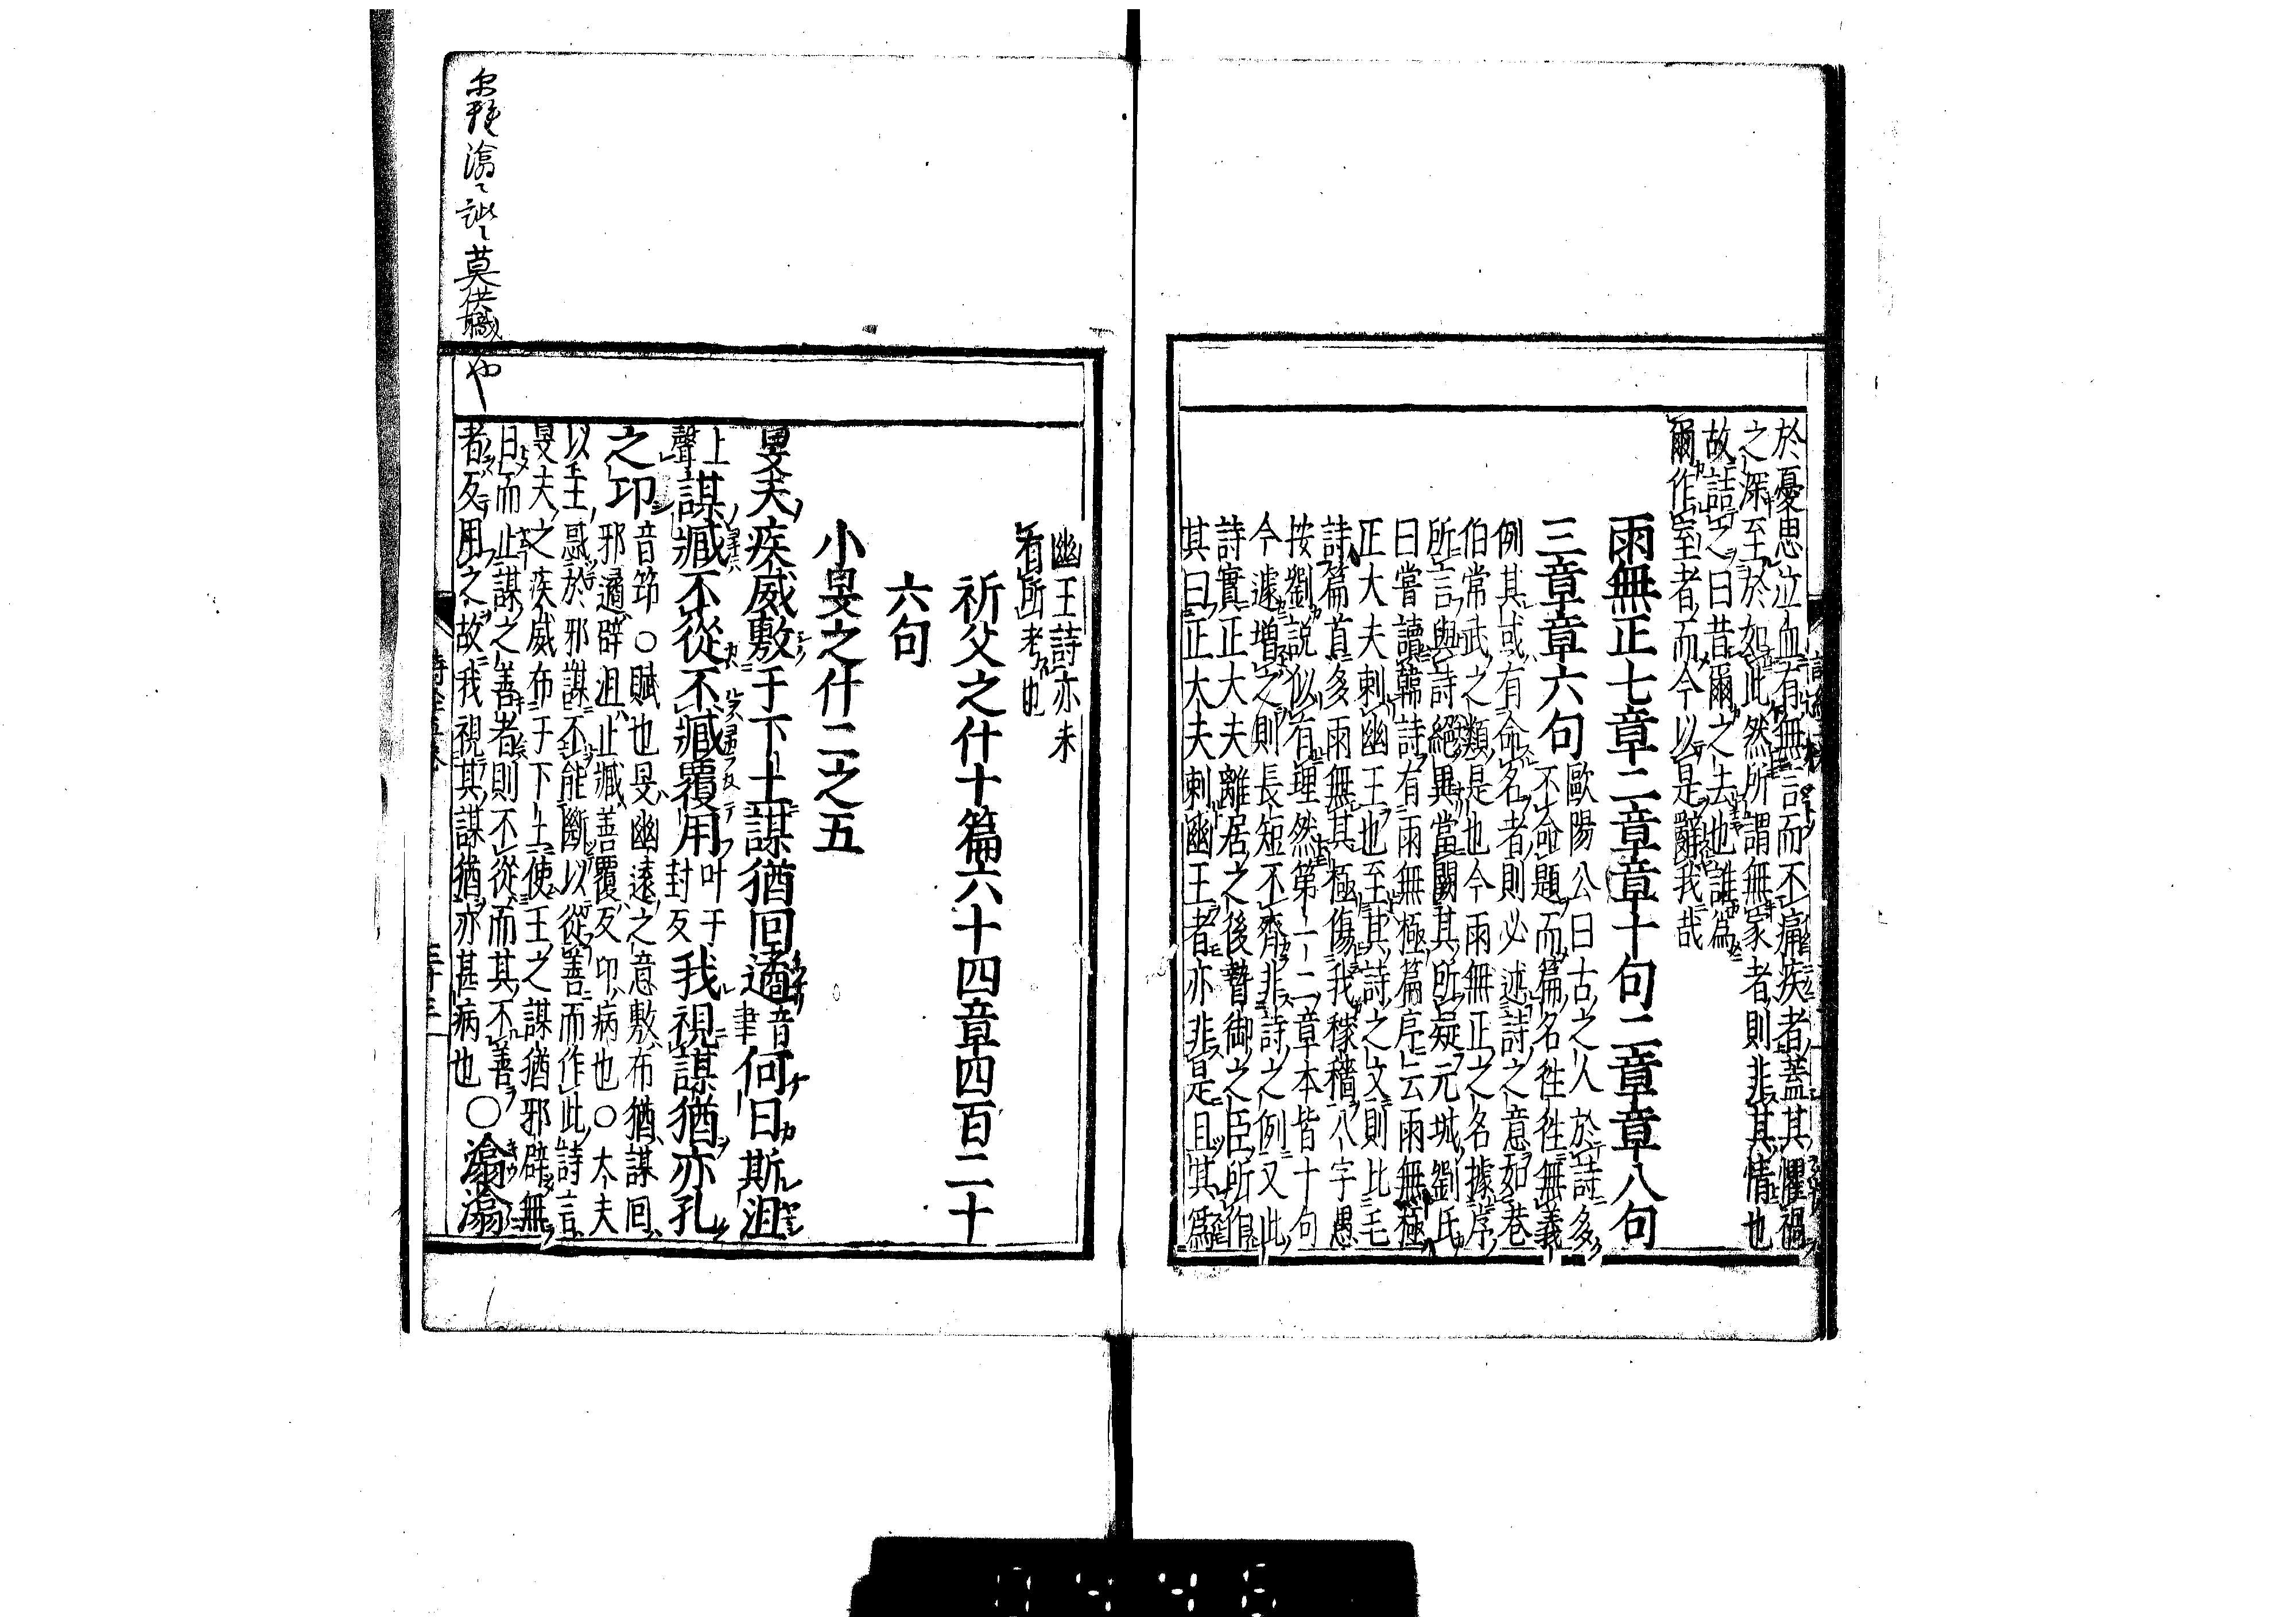 於憂思泣血有無言而不痛疾者蓋其懼禍
之深至於如此然所謂無家者則非其情也
故詰之曰昔爾之去也誰爲
爾作室者而今以是辭我哉
雨無正七章二章章十句二章章八句
三章章六句歐陽公曰古之人於詩多
不命題而篇名徃徃無義
例其或有命名者則必述詩之意如巷
伯常武之類是也今雨無正之名據序
所言與詩絕異當闕其所疑元城劉氏
曰嘗讀韓詩有雨無極篇序云雨無極
正大夫刺幽王也至其詩之文則比毛
詩篇首多雨無其極傷我稼穡八字愚
按劉說似有理然第一二章本皆十句
今遽增之則長短不齊非詩之例又此
詩實正大夫離居之後暬御之臣所作
其曰正大夫刺幽王者亦非是且其爲
幽王詩亦未
有所考也
祈父之什十篇六十四章四百二十
六句
小旻之什二之五
旻天疾威敷于下土謀猶回遹音聿何日斯沮
上聲謀臧不從不臧覆用叶于封反我視謀猶亦孔
之卭音筇○賦也旻幽遠之意敷布猶謀回
邪遹辟沮止臧善覆反卭病也○大夫
以王惑於邪謀不能斷以從善而作此詩言
旻天之疾威布于下土使王之謀猶邪辟無
日而止謀之善者則不從而其不善
者反用之故我視其謀猶亦甚病也○潝潝
莫供職也